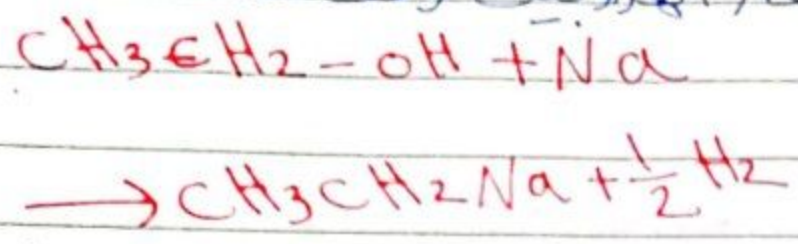 CH3CH2-OH + Na
→ CH3CH2Na + 1/2 H2